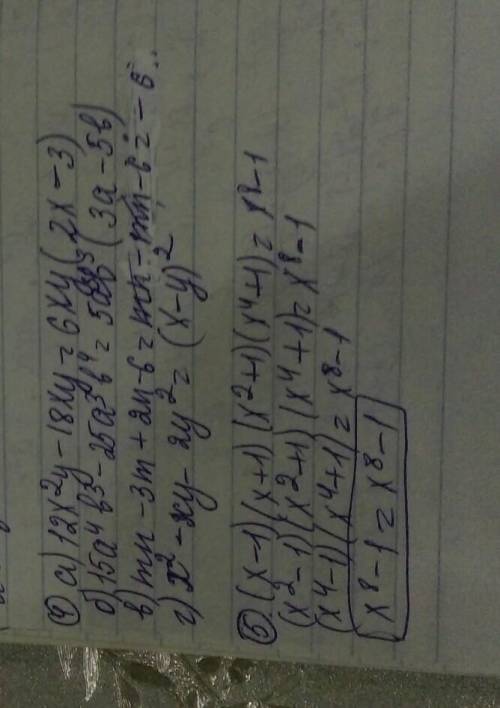 ④ а) 12x²y - 18xy = 6xy(2x - 3)
б) 15a⁴b³ - 25a³b⁴ = 5a³b³(3a - 5b)
в) mn - 3m + 2n - 6 = mn - mn - 6 = - 6
г) x² - xy - 2y² = (x - y)²
⑤ (x-1)(x+1)(x²+1)(x⁴+1) = x⁸-1
(x²-1)(x²+1)(x⁴+1) = x⁸-1
(x⁴-1)(x⁴+1) = x⁸-1
x⁸-1 = x⁸-1